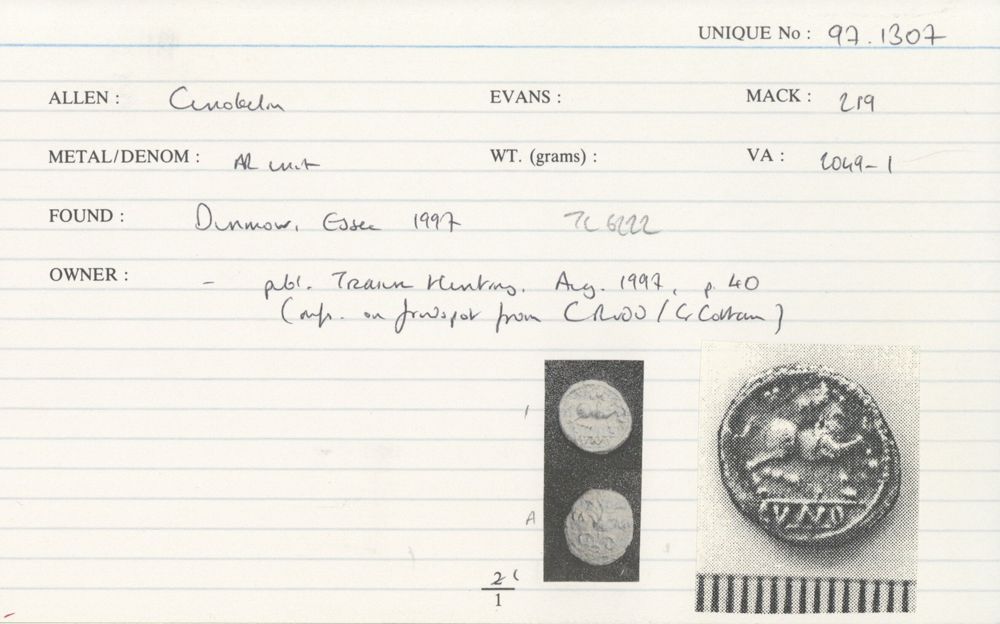 UNIQUE No : 97.1307
ALLEN : Cunobelin EVANS : MACK : 219
METAL/DENOM : AR unit WT. (grams) : VA : 2049-1
FOUND : Dunmow, Essex 1997 TC 6222
OWNER : - publ. Treasure Hunting. Aug. 1997, p. 40
(info. on findspot from CR00 / G Cottam)
1
CVNO
A
2
1